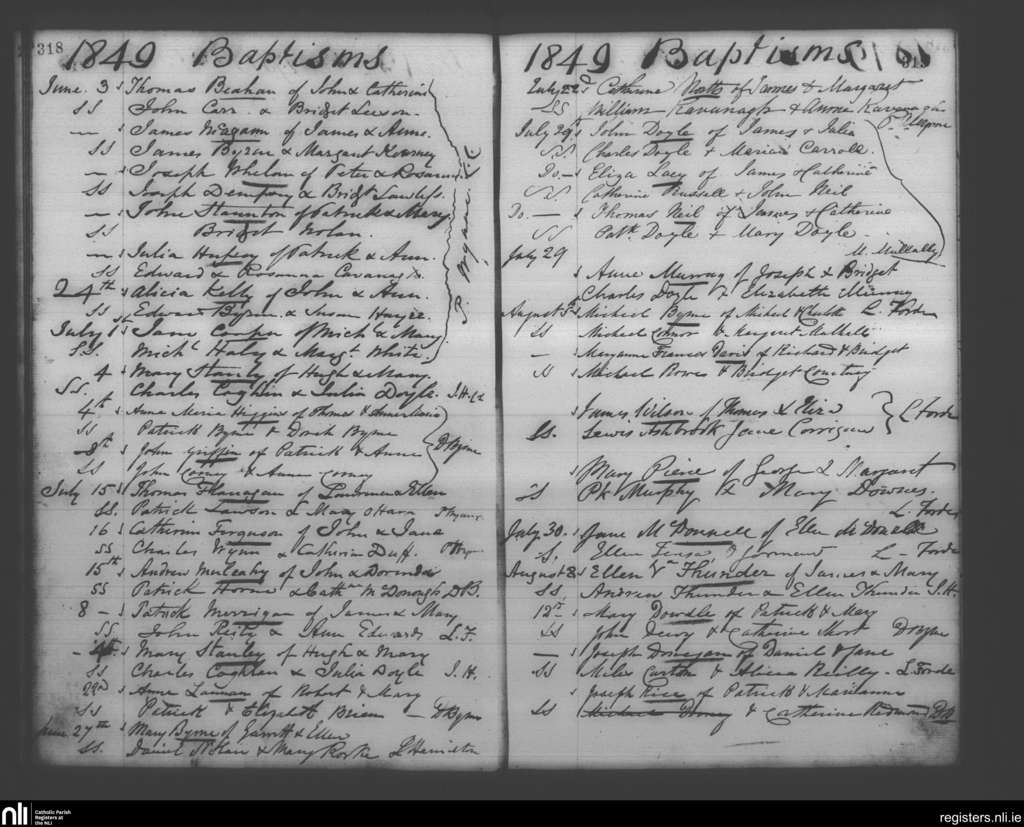 318
1849 Baptisms
June. 3 Thomas Beahan of John & Catherine
SS John Carr & Bridget Leeson.
— James McGagann of James & Anne.
SS James Byrne & Margaret Kearney
— Joseph Whelan of Peter & Rosanna
SS Joseph Dempsey & Bridget Lawless.
— John Staunton of Patrick & Mary
SS Bridget Nolan.
— Julia of Patrick & Ann.
SS Edward & Rosanna Cavanagh
24th Alicia Kelly of John & Ann.
SS Edward Byrne & Susan
July 1st Jane Cooper of Mich & Mary
S.S. Michl Haly & Margt. White
4 Mary Stanley of Hugh & Mary
SS. Charles Coghlin & Julia Doyle.
4th Anne Maria Higgins of Thomas &
SS Patrick Byrne & Byrne
8th John Griffin of Patrick & Anne
SS John & Anne
DByrne
July 15 Thomas Flanagan of Lawrence & Ellen
SS. Patrick Lawson & Mary O Hara
16 Catherine Ferguson of John & Jane
SS Charles Wynn & Catherine Duff.
15th Andrew of John & Dorinda
SS Patrick Horne & Cathn McDonough DB.
8 — Patrick Merrigan of James & Mary
SS John Reily & Ann Edwards L.F.
4th. Mary Stanley of Hugh & Mary
SS Charles Coghlan & Julia Doyle J.H.
22nd Anne Lannan of Robert & Mary
SS Patrick & Elizabeth Brien — DByrne
June 27th Mary Byrne of Garrett & Ellen
SS. Daniel Nolan & Mary Rorke L Hamilton
1849 Baptisms
July 22nd Catherine Notts of James & Margaret
SS William Kavanagh & Anne Kavanagh
July 29th John Doyle of James & Julia
SS. Charles Doyle & Maria Carroll.
Do.— Eliza Lacy of James & Catherine
SS. Catherine Russell & John Neil
Do. — Thomas Neil of James & Catherine
SS Patk. Doyle & Mary Doyle.
July 29 M. Mullally
Anne Murray of Joseph & Bridget
Charles Doyle & Elizabeth Murray
August 5th Michael Byrne of Michael & L. Forde
SS Michael Connor & Margaret
— Maryanne Frances Davis of Richard & Bridget
SS Michael Rowes & Bridget Courtney
James Wilson of Thomas & Eliza
SS. Lewis Ashbrook Jane Corrigan L Forde
Mary Pierce of George & Margaret
SS Pk Murphy & Mary Downes.
L. Forde
July 30. Jane McDonnell of Ellen McDonnell
S. Ellen L – Forde
August 8 Ellen Va Thunder of James & Mary
SS, Andrew Thunder & Ellen Thunder J.H.
12th Mary Dowdle of Patrick & Mary
SS John & Catherine DByrne
— Joseph Donegan of Daniel & Jane
SS Miles & Alicia Reilly – L Forde
Joseph Rice of Patrick & Marianne
SS & Catherine Redmond DB
nli Catholic Parish
Registers at
the NLI
registers.nli.ie